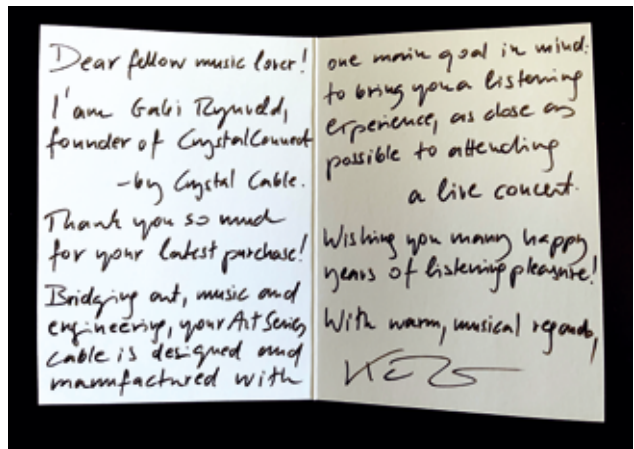 Dear fellow music lover!
I'am Gabi Rynveld,
founder of CrystalConnect
-by Crystal Cable.
Thank you so much
for your latest purchase!
Bridging art, music and
engineering, your Art Series
cable is designed and
manufactured with
one main goal in mind:
to bring you a listening
experience, as close as
possible to attending
a live concert.
Wishing you many happy
years of listening pleasure!
With warm, musical regards,